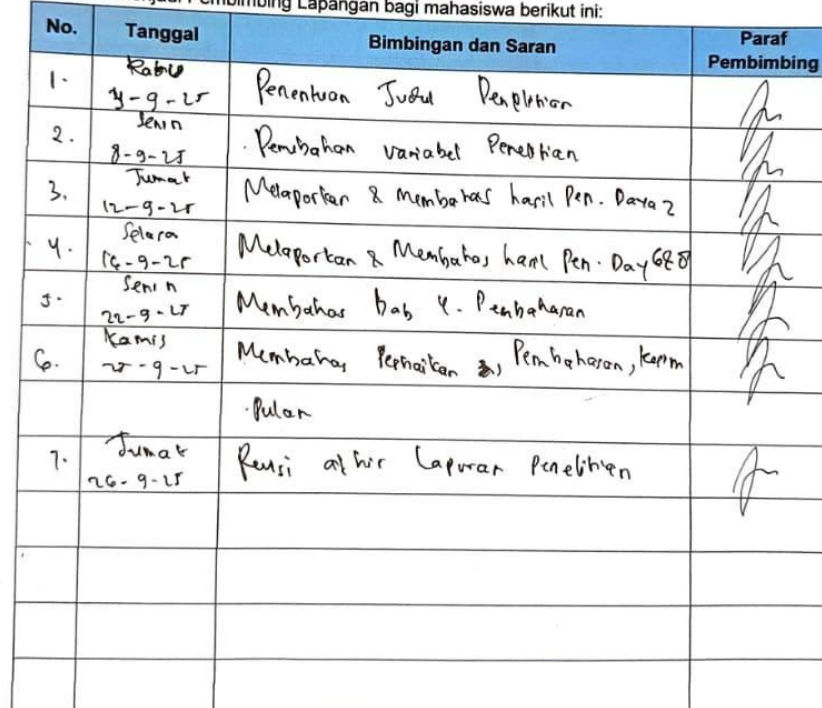 Pembimbing Lapangan bagi mahasiswa berikut ini:
No. Tanggal Bimbingan dan Saran Paraf Pembimbing
1. Rabu 3-9-25 Penentuan Judul Penelitian
2. Senin 8-9-25 Perubahan variabel Penelitian
3. Jumat 12-9-25 Melaporkan & Membahas hasil Pen. Daya 2
4. Selasa 16-9-25 Melaporkan & Membahas hasil Pen. Day
5. Senin 22-9-25 Membahas bab 4. Pembahasan
6. Kamis 25-9-25 Membahas Perbaikan Pembahasan, kesim
pulan
7. Jumat 26-9-25 Revisi akhir Laporan Penelitian